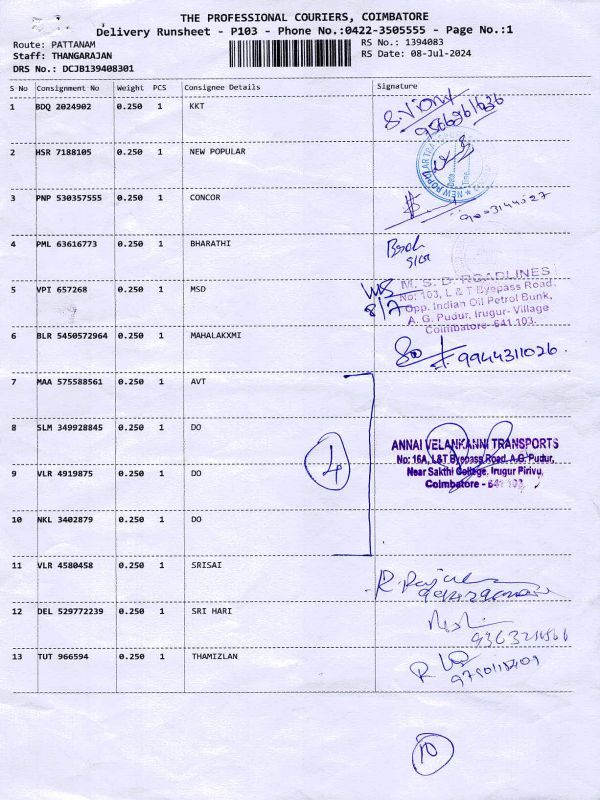 THE PROFESSIONAL COURIERS, COIMBATORE
Delivery Runsheet - P103 - Phone No.:0422-3505555 - Page No.:1
Route: PATTANAM
RS No.: 1394083
Staff: THANGARAJAN
RS Date: 08-Jul-2024
DRS No.: DCJB139408301
S No Consignment No Weight PCS Consignee Details Signature
1 BDQ 2024902 0.250 1 KKT
2 HSR 7188105 0.250 1 NEW POPULAR
3 PNP 530357555 0.250 1 CONCOR
4 PML 63616773 0.250 1 BHARATHI
5 VPI 657268 0.250 1 MSD
8/7
M. S. D. ROADLINES
No: 103, L & T Byepass Road,
Opp. Indian Oil Petrol Bunk,
A. G. Pudur, Irugur- Village
Coimbatore- 641 103.
6 BLR 5450572964 0.250 1 MAHALAKXMI
9944311026.
7 MAA 575588561 0.250 1 AVT
8 SLM 349928845 0.250 1 DO
4
ANNAI VELANKANNI TRANSPORTS
No: 16A, L&T Byepass Road, A.G. Pudur,
Near Sakthi College, Irugur Pirivu,
Coimbatore - 641 103.
9 VLR 4919875 0.250 1 DO
10 NKL 3402879 0.250 1 DO
11 VLR 4580458 0.250 1 SRISAI
12 DEL 529772239 0.250 1 SRI HARI
13 TUT 966594 0.250 1 THAMIZLAN
10